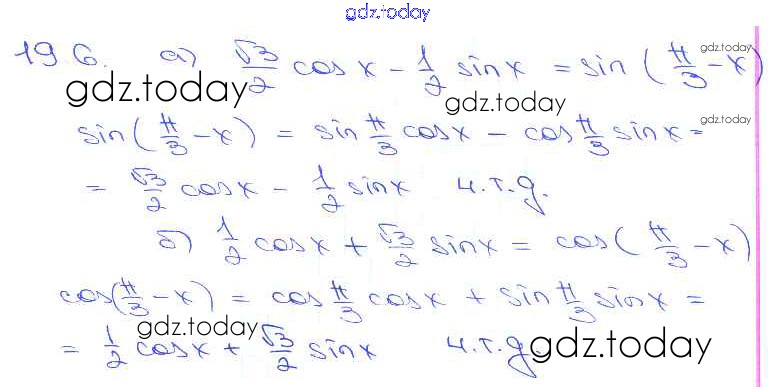 gdz.today
19 6. а) √3/2 cos x - 1/2 sin x = sin (π/3 - x)
gdz.today
gdz.today
gdz.today
sin(π/3 - x) = sin π/3 cos x - cos π/3 sin x =
gdz.today
= √3/2 cos x - 1/2 sin x ч.т.д.
б) 1/2 cos x + √3/2 sin x = cos(π/3 - x)
cos(π/3 - x) = cos π/3 cos x + sin π/3 sin x =
gdz.today
= 1/2 cos x + √3/2 sin x ч.т.д
gdz.today